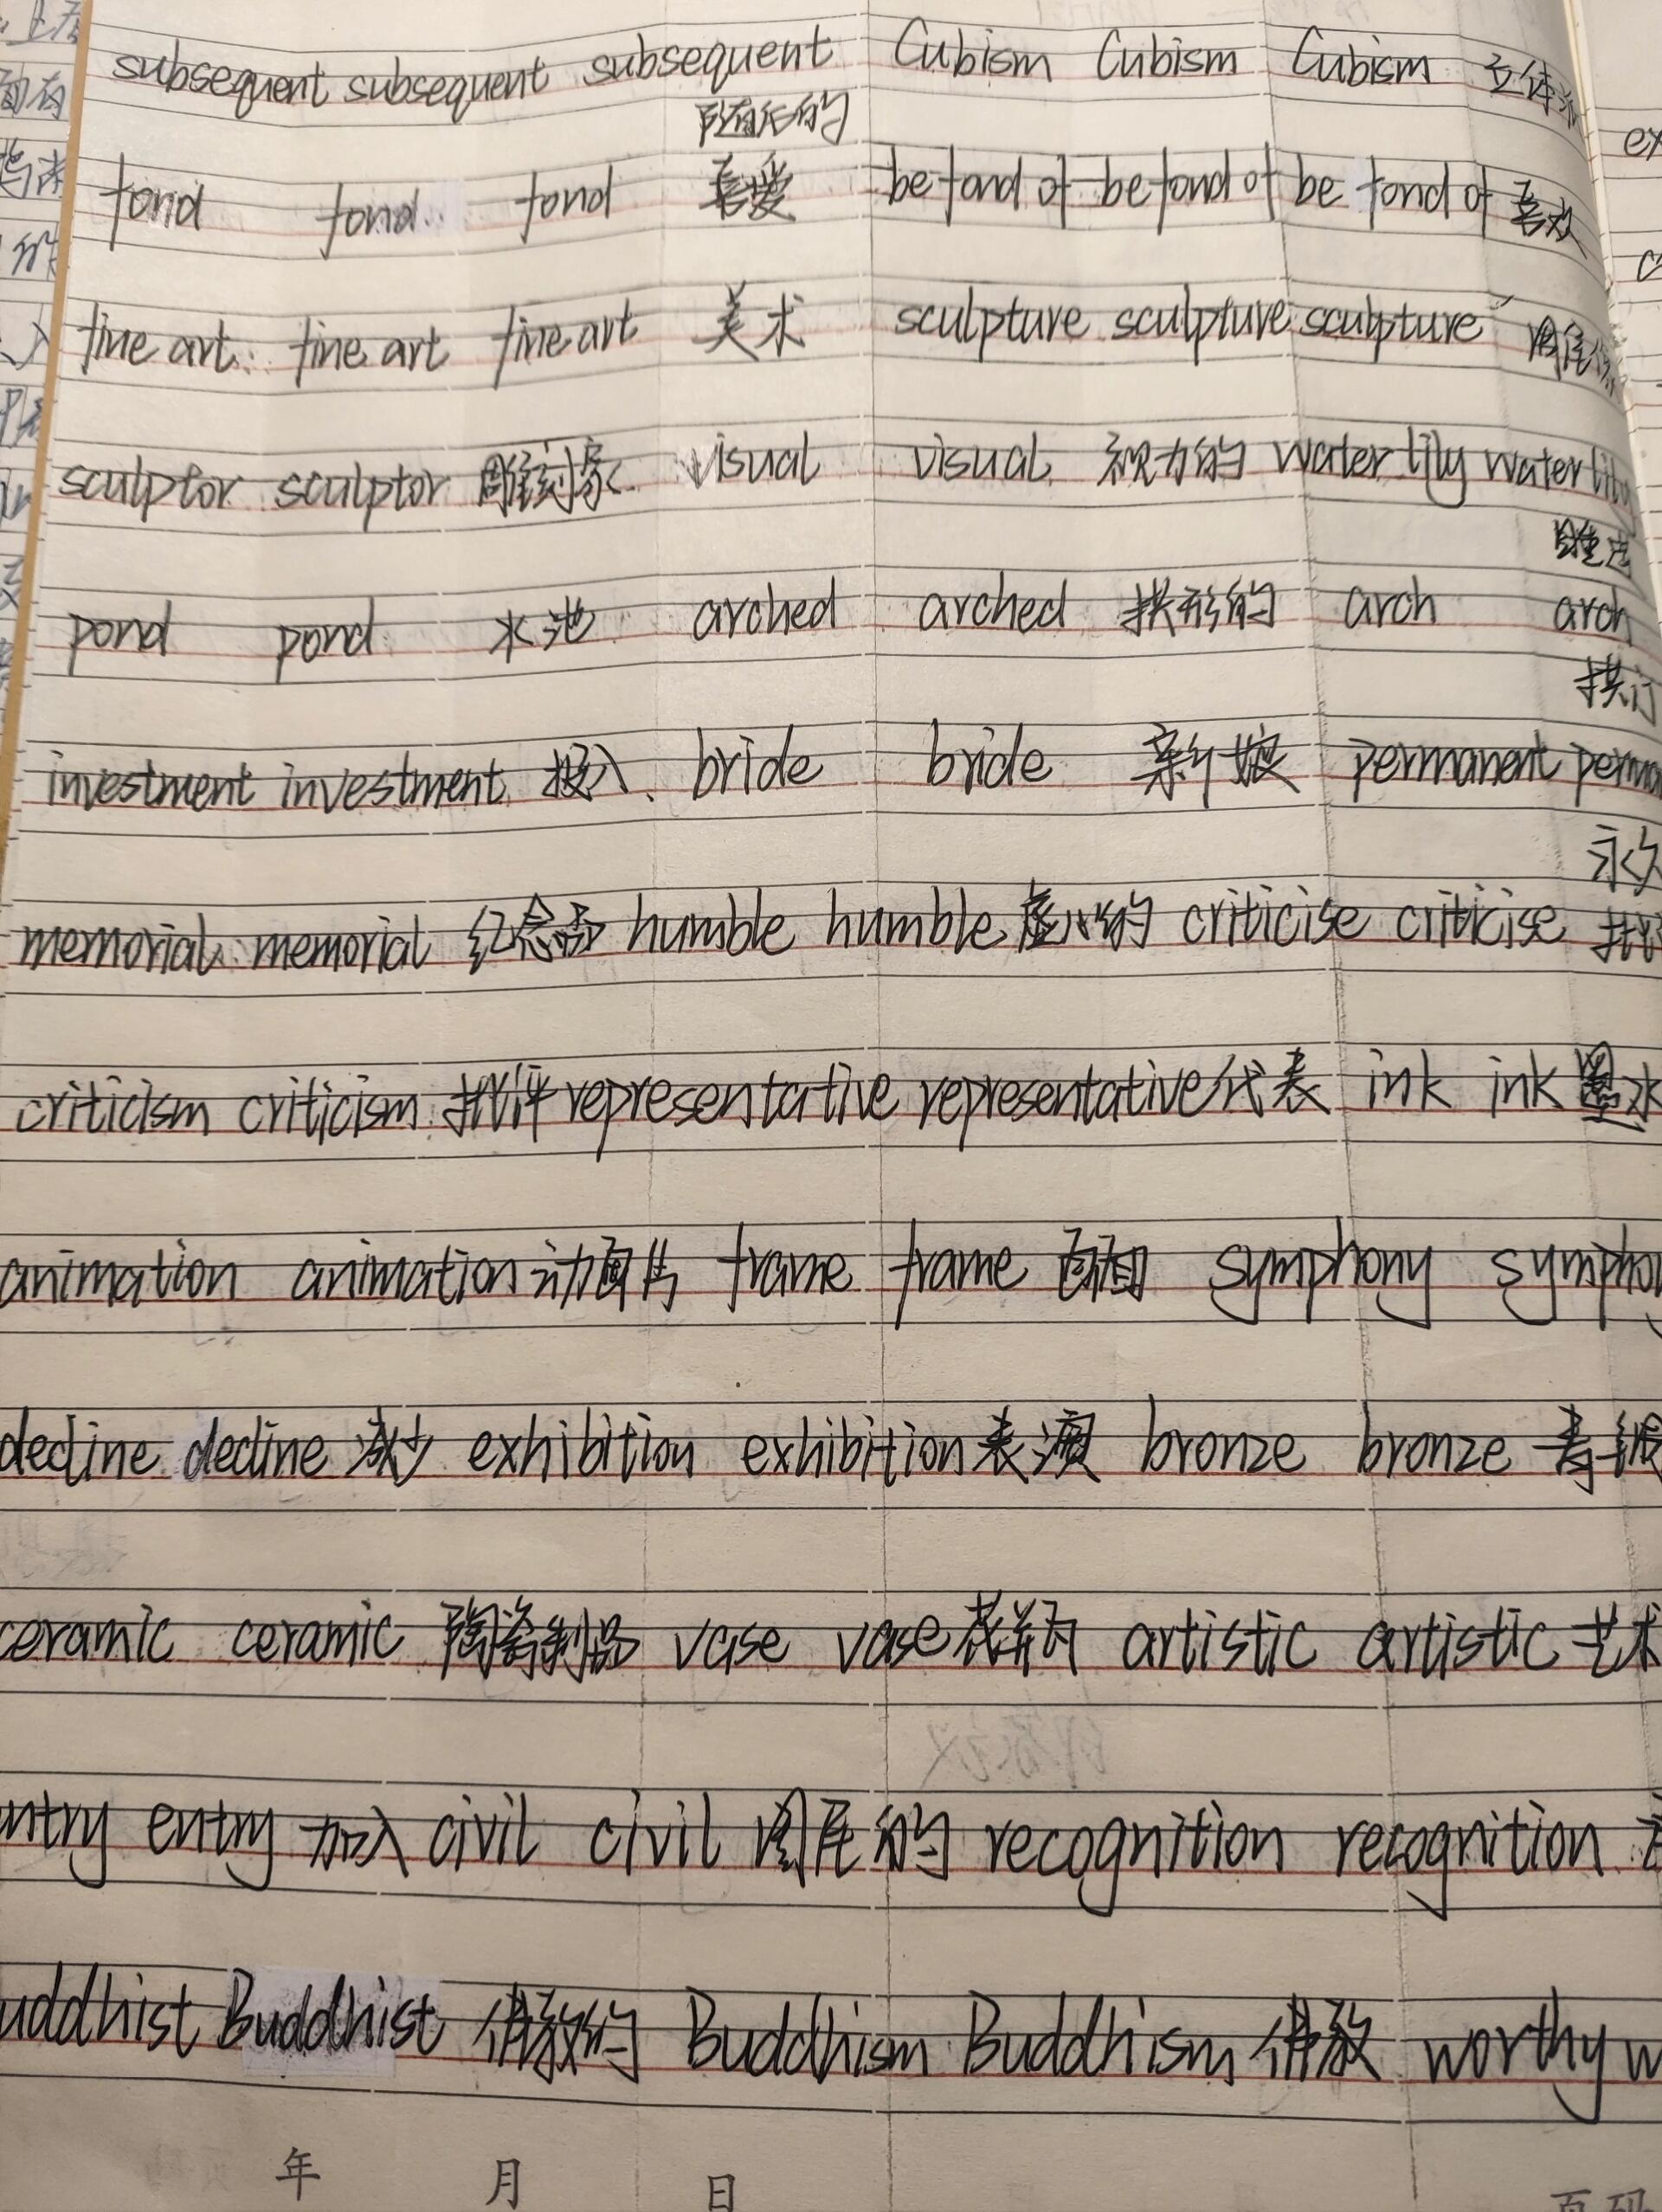 subsequent subsequent subsequent Cubism Cubism Cubism 立体派
随后的
fond fond fond 喜爱 be fond of be fond of be fond of 喜欢
fine art fine art fine art 美术 sculpture sculpture sculpture
sculptor sculptor 雕刻家 visual visual 视力的 water lily water lily
睡莲
pond pond 水池 arched arched 拱形的 arch arch
拱门
investment investment 投入 bride bride 新娘 permanent perma
永久
memorial memorial 纪念碑 humble humble 虚心的 criticise criticise 批
criticism criticism 批评 representative representative 代表 ink ink 墨水
animation animation 动画片 frame frame symphony symphony
decline decline 减少 exhibition exhibition 表演 bronze bronze 青铜
ceramic ceramic 陶瓷制品 vase vase 花瓶 artistic artistic 艺术
ntry entry 加入 civil civil 国民的 recognition recognition
uddhist Buddhist 佛教的 Buddhism Buddhism 佛教 worthy w
年 月 日 页码